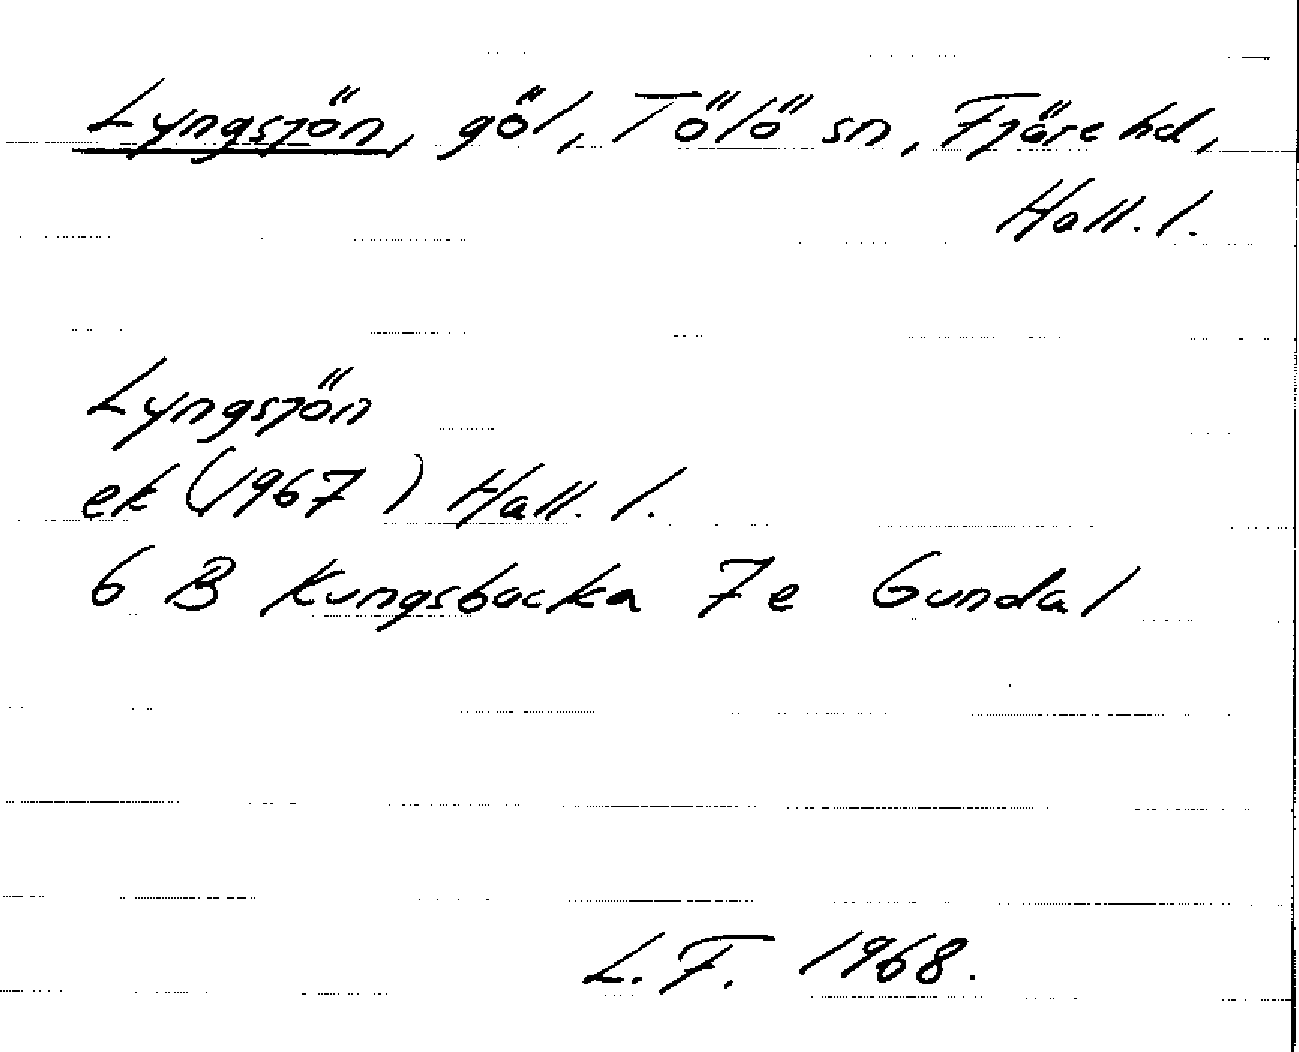 Lyngsjön, göl, Tölö sn, Fjäre hd,
Hall. l.
Lyngsjön
ek (1967) Hall. l.
6 B Kungsbacka 7e Gundal
L.F. 1968.